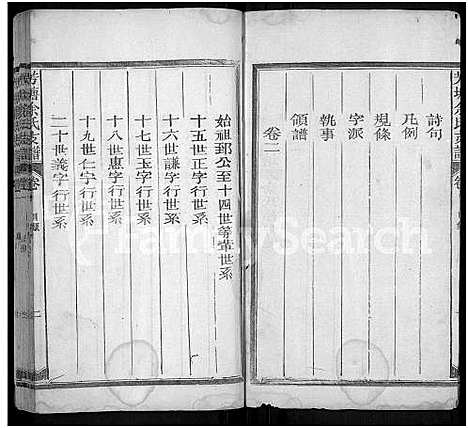 詩句
凡例
規條
字派
執事
領譜
卷二
始祖郢公至十四世等輩世系
十五世正字行世系
十六世謙字行世系
十七世玉字行世系
十八世惠字行世系
十九世仁字行世系
二十世義字行世系
芳塘余氏支譜
FamilySearch